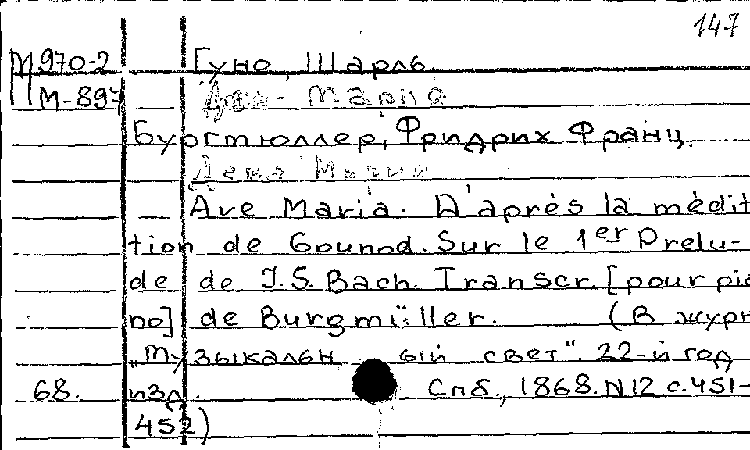 147
М970-2 Гуно, Шарль
М-897 Мария
Бургмюллер, Фридрих Франц.
Ave Maria. D'après la médit
tion de Gounod. Sur le 1er Prelu-
de de J.S. Bach. Transcr. [pour pia
no] de Burgmüller. (В журн
„Музыкальный свет". 22-й год
68. изд. Спб., 1868. N12 с.451-
452)